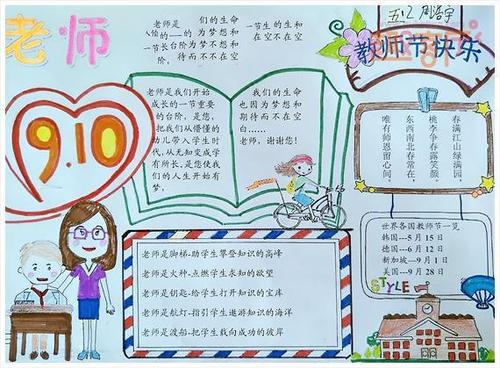 老师
老师是 们的生命
一节长台阶为梦想和
阶， 待而不不在空
一节生的生和
在空不在空
五.2 周浩宇
教师节快乐
9.10
老师是我们开始
成长的一节重要
的台阶，是您，
把我们从懵懂的
幼儿带入学生时
代，从无知变成学
有所长，是您使我
们的人生开始有
梦，
我们的生命
也因为梦想和
期待而不在空
白……
老师，谢谢您！
春满江山绿满园，
桃李争春露笑颜。
东西南北春常在，
唯有师恩留心间。
世界各国教师节一览
韩国---5月15日
德国---6月12日
新加坡---9月1日
美国---9月28日
STYLE
老师是脚梯-助学生攀登知识的高峰
老师是火种-点燃学生求知的欲望
老师是钥匙-给学生打开知识的宝库
老师是航灯-指引学生遨游知识的海洋
老师是渡船-把学生载向成功的彼岸